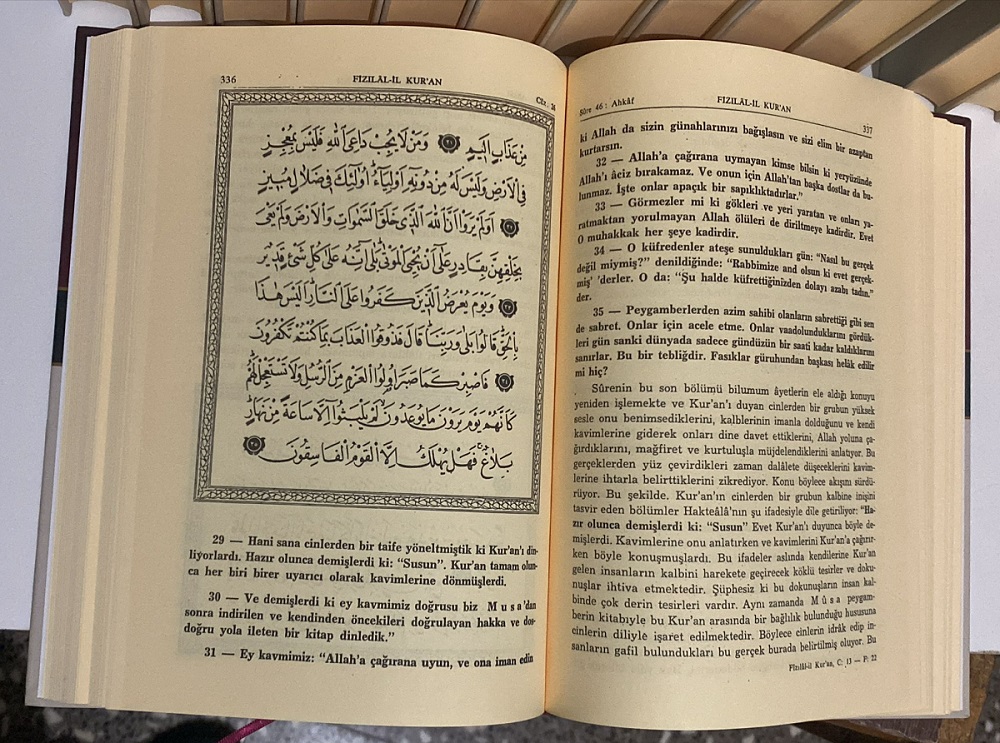 336
FİZILÂL-İL KUR'AN
Cüz: 26
مِنْ عَذَابٍ اَلِيمٍ ﴿٣١﴾ وَمَنْ لَا يُجِبْ دَاعِيَ اللّٰهِ فَلَيْسَ بِمُعْجِزٍ
فِي الْاَرْضِ وَلَيْسَ لَهُ مِنْ دُونِهِ اَوْلِيَاءُ اُولٰئِكَ فِي ضَلَالٍ مُبِينٍ
﴿٣٢﴾ اَوَلَمْ يَرَوْا اَنَّ اللّٰهَ الَّذِي خَلَقَ السَّمٰوَاتِ وَالْاَرْضَ وَلَمْ يَعْيَ
بِخَلْقِهِنَّ بِقَادِرٍ عَلٰى اَنْ يُحْيِيَ الْمَوْتٰى بَلٰى اِنَّهُ عَلٰى كُلِّ شَيْءٍ قَدِيرٌ
﴿٣٣﴾ وَيَوْمَ يُعْرَضُ الَّذِينَ كَفَرُوا عَلَى النَّارِ اَلَيْسَ هٰذَا
بِالْحَقِّ قَالُوا بَلٰى وَرَبِّنَا قَالَ فَذُوقُوا الْعَذَابَ بِمَا كُنْتُمْ تَكْفُرُونَ
﴿٣٤﴾ فَاصْبِرْ كَمَا صَبَرَ اُولُوا الْعَزْمِ مِنَ الرُّسُلِ وَلَا تَسْتَعْجِلْ لَهُمْ
كَاَنَّهُمْ يَوْمَ يَرَوْنَ مَا يُوعَدُونَ لَمْ يَلْبَثُوا اِلَّا سَاعَةً مِنْ نَهَارٍ
بَلَاغٌ فَهَلْ يُهْلَكُ اِلَّا الْقَوْمُ الْفَاسِقُونَ ﴿٣٥﴾
29 — Hani sana cinlerden bir taife yöneltmiştik ki Kur'an'ı din-
liyorlardı. Hazır olunca demişlerdi ki: "Susun". Kur'an tamam olun-
ca her biri birer uyarıcı olarak kavimlerine dönmüşlerdi.
30 — Ve demişlerdi ki ey kavmimiz doğrusu biz Musa'dan
sonra indirilen ve kendinden öncekileri doğrulayan hakka ve dos-
doğru yola ileten bir kitap dinledik."
31 — Ey kavmimiz: "Allah'a çağırana uyun, ve ona iman edin
Sûre 46: Ahkâf
FİZILÂL-İL KUR'AN
337
ki Allah da sizin günahlarınızı bağışlasın ve sizi elim bir azaptan
kurtarsın.
32 — Allah'a çağırana uymayan kimse bilsin ki yeryüzünde
Allah'ı âciz bırakamaz. Ve onun için Allah'tan başka dostlar da bu-
lunmaz. İşte onlar apaçık bir sapıklıktadırlar."
33 — Görmezler mi ki gökleri ve yeri yaratan ve onları ya-
ratmaktan yorulmayan Allah ölüleri de diriltmeye kadirdir. Evet
O muhakkak her şeye kadirdir.
34 — O küfredenler ateşe sunuldukları gün: "Nasıl bu gerçek
değil miymiş?" denildiğinde: "Rabbimize and olsun ki evet gerçek-
miş" 'derler. O da: "Şu halde küfrettiğinizden dolayı azabı tadın."
der.
35 — Peygamberlerden azim sahibi olanların sabrettiği gibi sen
de sabret. Onlar için acele etme. Onlar vaadolunduklarını gördük-
leri gün sanki dünyada sadece gündüzün bir saati kadar kaldıklarını
sanırlar. Bu bir tebliğdir. Fasıklar güruhundan başkası helâk edilir
mi hiç?
Sûrenin bu son bölümü bilumum âyetlerin ele aldığı konuyu
yeniden işlemekte ve Kur'an'ı duyan cinlerden bir grubun yüksek
sesle onu benimsediklerini, kalblerinin imanla dolduğunu ve kendi
kavimlerine giderek onları dine davet ettiklerini, Allah yoluna ça-
ğırdıklarını, mağfiret ve kurtuluşla müjdelendiklerini anlatıyor. Bu
gerçeklerden yüz çevirdikleri zaman dalâlete düşeceklerini kavim-
lerine ihtarla belirttiklerini zikrediyor. Konu böylece akışını sürdü-
rüyor. Bu şekilde. Kur'an'ın cinlerden bir grubun kalbine inişini
tasvir eden bölümler Hakteâlâ'nın şu ifadesiyle dile getiriliyor: "Ha-
zır olunca demişlerdi ki: "Susun" Evet Kur'an'ı duyunca böyle de-
mişlerdi. Kavimlerine onu anlatırken ve kavimlerini Kur'an'a çağırır-
ken böyle konuşmuşlardı. Bu ifadeler aslında kendilerine Kur'an
gelen insanların kalbini harekete geçirecek köklü tesirler ve doku-
nuşlar ihtiva etmektedir. Şüphesiz ki bu dokunuşların insan kal-
binde çok derin tesirleri vardır. Aynı zamanda Mûsa peygam-
berin kitabıyle bu Kur'an arasında bir bağlılık bulunduğu hususuna
cinlerin diliyle işaret edilmektedir. Böylece cinlerin idrâk edip in-
sanların gafil bulundukları bu gerçek burada belirtilmiş oluyor. Bu
Fîzılâl-il Kur'an, C: 13 — F: 22